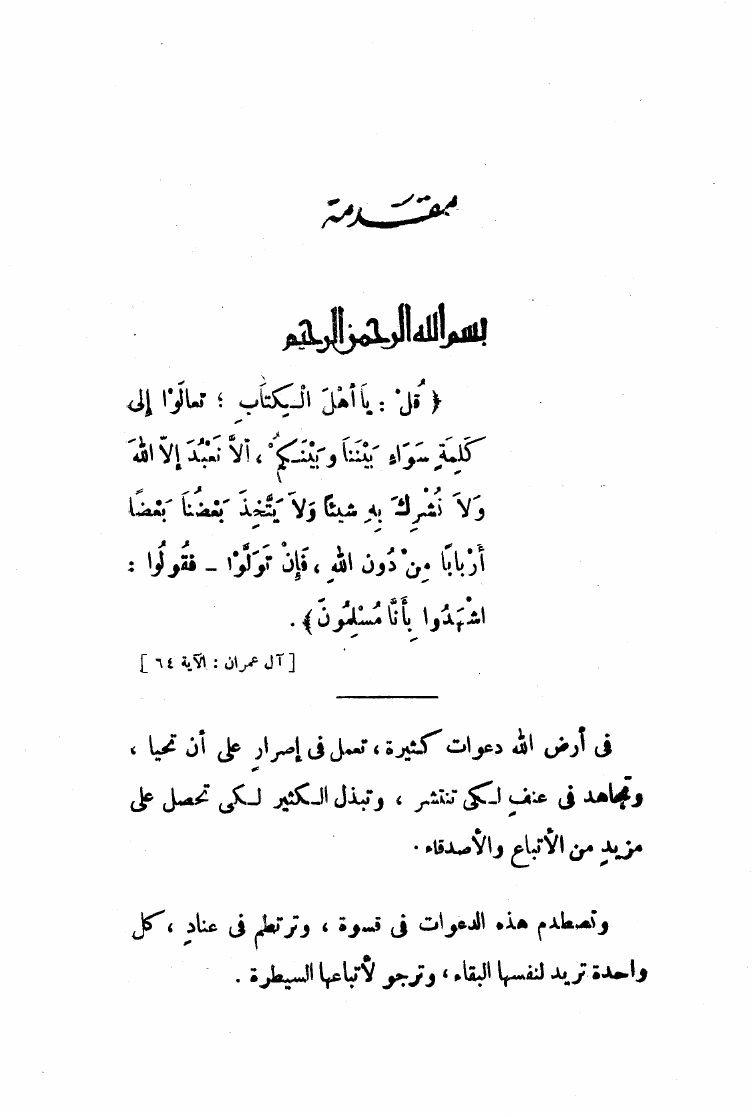 مقدمة
بسم الله الرحمن الرحيم
﴿ قُلْ : يَا أَهْلَ الْكِتَابِ ؛ تعالَوْا إلى
كَلِمَةٍ سَوَاءِ بَيْنَنَا وبَيْنَكُمْ ، ألاَّ نَعْبُدَ إلاّ اللهَ
وَلاَ نُشْرِكَ بِهِ شيئًا وَلاَ يَتَّخِذَ بَعْضُنَا بَعْضًا
أَرْبَابًا مِنْ دُونِ اللهِ ، فَإِنْ تَوَلَّوْا – فَقُولُوا :
اشْهَدُوا بِأَنَّا مُسْلِمُونَ ﴾ .
[ آل عمران : الآية ٦٤ ]
فى أرض الله دعوات كثيرة ، تعمل فى إصرارٍ على أن تحيا ،
وتجاهد فى عنفٍ لكى تنتشر ، وتبذل الكثير لكى تحصل على
مزيدٍ من الأتباع والأصدقاء .
وتصطدم هذه الدعوات فى قسوة ، وترتطم فى عنادٍ ، كل
واحدة تريد لنفسها البقاء ، وترجو لأتباعها السيطرة .